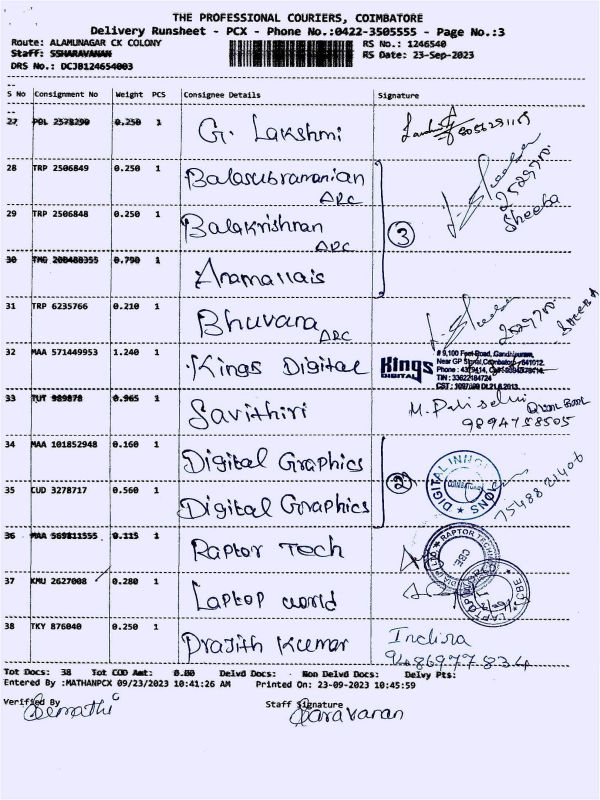 THE PROFESSIONAL COURIERS, COIMBATORE
Delivery Runsheet - PCX - Phone No.:0422-3505555 - Page No.:3
Route: ALAMUNAGAR CK COLONY RS No.: 1246540
Staff: SSHARAVANAN RS Date: 23-Sep-2023
DRS No.: DCJB124654003
S No Consignment No Weight PCS Consignee Details Signature
27 POL 2578290 0.250 1 G. Lakshmi
28 TRP 2506849 0.250 1 Balasubramanian ARC
29 TRP 2506848 0.250 1 Balakrishnan ARC 3 Sheeba
30 TMG 200480355 0.790 1 Anamallais
31 TRP 6235766 0.210 1 Bhuvana ARC
32 MAA 571449953 1.240 1 Kings Digital Kings DIGITAL
# 9,100 Feet Road, Gandhipuram,
33 TUT 989878 0.965 1 Savithiri
9894758505
34 MAA 101852948 0.160 1 Digital Graphics
35 CUD 3278717 0.560 1 Digital Graphics 2
36 MAA 569811555 0.115 1 Raptor Tech
37 KMU 2627008 0.280 1 Laptop world
38 TKY 876040 0.250 1 Prajith Kumar Indira
9486977834
Tot Docs: 38 Tot COD Amt: 0.00 Delvd Docs: Non Delvd Docs: Delvy Pts:
Entered By :MATHANPCX 09/23/2023 10:41:26 AM Printed On: 23-09-2023 10:45:59
Verified By Staff Signature
Saravanan